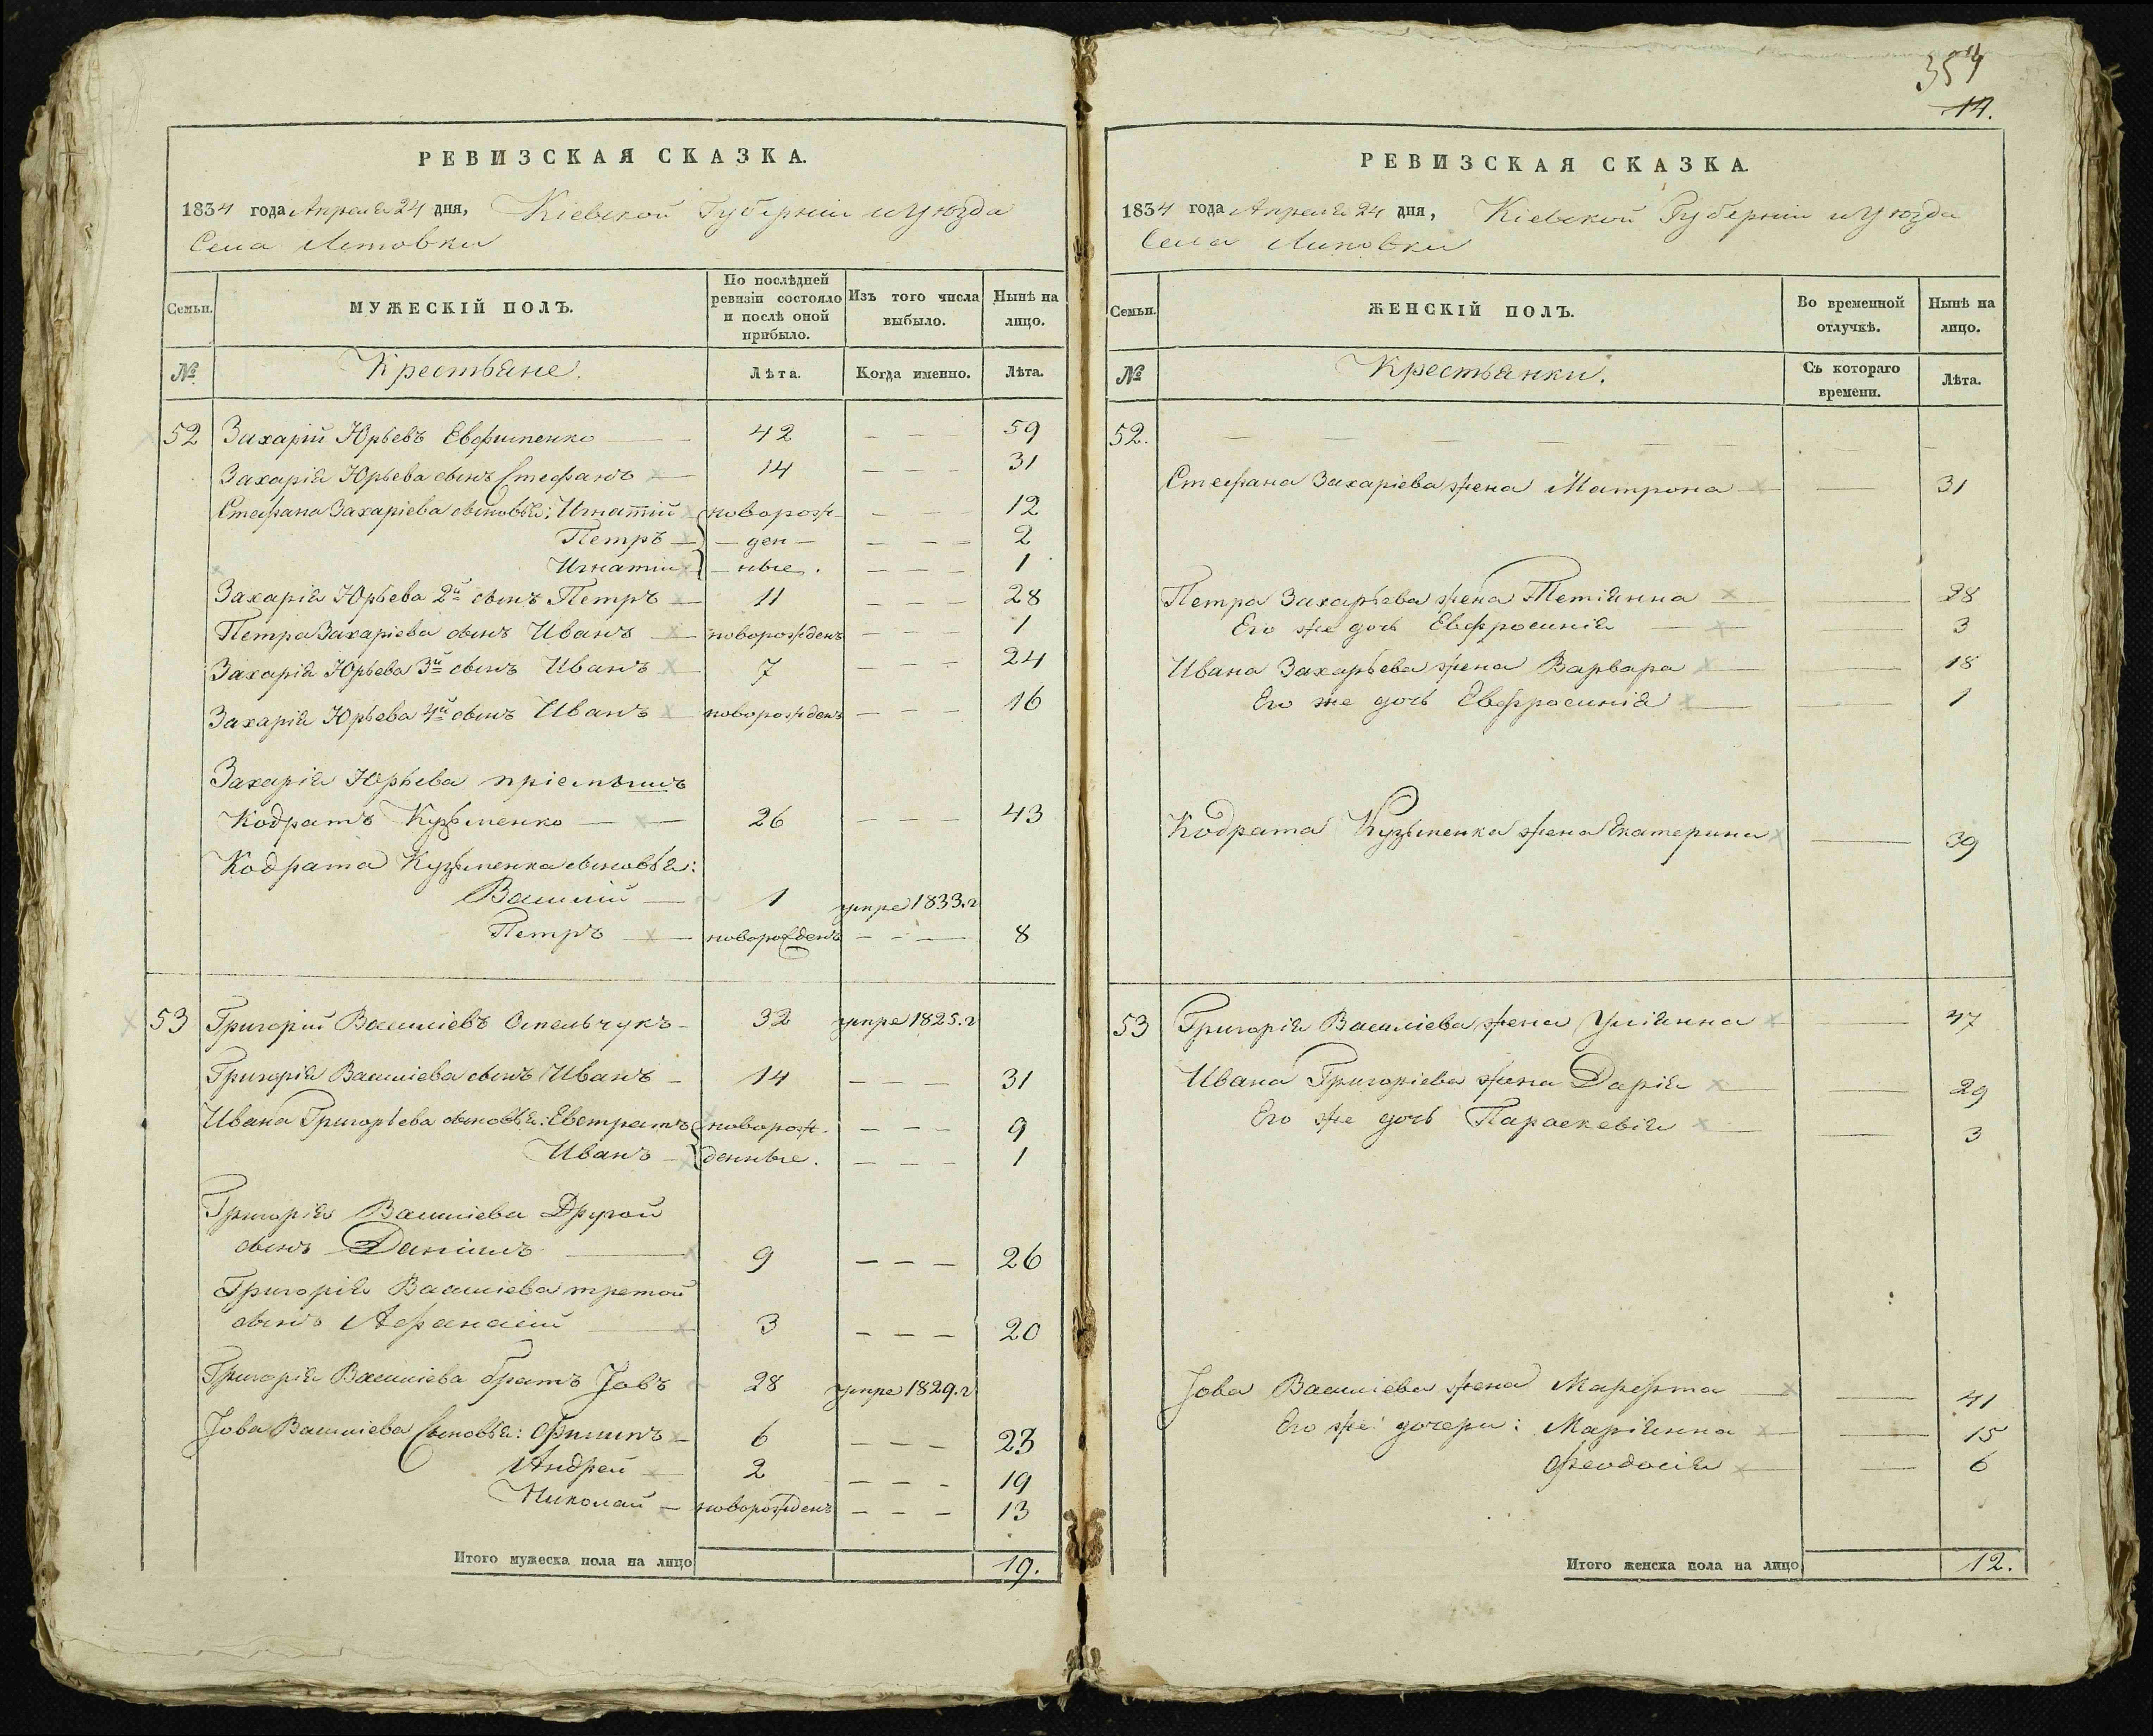 РЕВИЗСКАЯ СКАЗКА.
1834 года Апреля 24 дня, Кіевской Губерніи и Уѣзда
Села Липовки
Семьи.
МУЖЕСКІЙ ПОЛЪ.
По послѣдней ревизіи состояло и послѣ оной прибыло.
Изъ того числа выбыло.
Нынѣ на лицо.
№
Крестьяне.
Лѣта.
Когда именно.
Лѣта.
52 Захарій Юрьевъ Евфименко 42 — — 59
Захарія Юрьева сынъ Стефанъ 14 — — — 31
Стефана Захаріева сыновья: Игнатій новорож- — — — 12
Петръ — ден — — — — 2
Игнатій — ные. — — — 1
Захарія Юрьева 2й сынъ Петръ 11 — — — 28
Петра Захаріева сынъ Иванъ новорожденъ — — — 1
Захарія Юрьева 3й сынъ Иванъ 7 — — — 24
Захарія Юрьева 4й сынъ Иванъ новорожденъ — — — 16
Захарія Юрьева пріемышъ
Кодратъ Кузьменко 26 — — — 43
Кодрата Кузьменка сыновья:
Василій 1 умре 1833.г
Петръ новорожденъ — — — 8
53 Григорій Василіевъ Омельчукъ 32 умре 1825.г
Григорія Василіева сынъ Иванъ 14 — — — 31
Ивана Григорьева сыновья: Евстратъ новорож- — — — 9
Иванъ денные. — — — 1
Григорія Василіева Другой
сынъ Даніилъ 9 — — — 26
Григорія Василіева третой
сынъ Афанасій 3 — — — 20
Григорія Василіева братъ Іовъ 28 умре 1829.г
Іова Василіева Сыновья: Филипъ 6 — — — 23
Андрей 2 — — — 19
Николай новорожденъ — — — 13
Итого мужеска пола на лицо 19.
354
14.
РЕВИЗСКАЯ СКАЗКА.
1834 года Апреля 24 дня, Кіевской Губерніи и Уѣзда
Села Липовки
Семьи.
ЖЕНСКІЙ ПОЛЪ.
Во временной отлучкѣ.
Нынѣ на лицо.
№
Крестьянки.
Съ котораго времени.
Лѣта.
52. — — — — — —
Стефана Захаріева жена Матрона — 31
Петра Захарьева жена Тетіанна — 28
Его же дочь Евфросинія — 3
Ивана Захарьева жена Варвара — 18
Его же дочь Евфросинія — 1
Кодрата Кузьменка жена Екатерина — 39
53 Григорія Василіева жена Уліанна — 47
Ивана Григоріева жена Дарія — 29
Его же дочь Параскевія — 3
Іова Василіева жена Марфта — 41
Его же дочери: Маріянна — 15
Феодосія — 6
Итого женска пола на лицо 12.